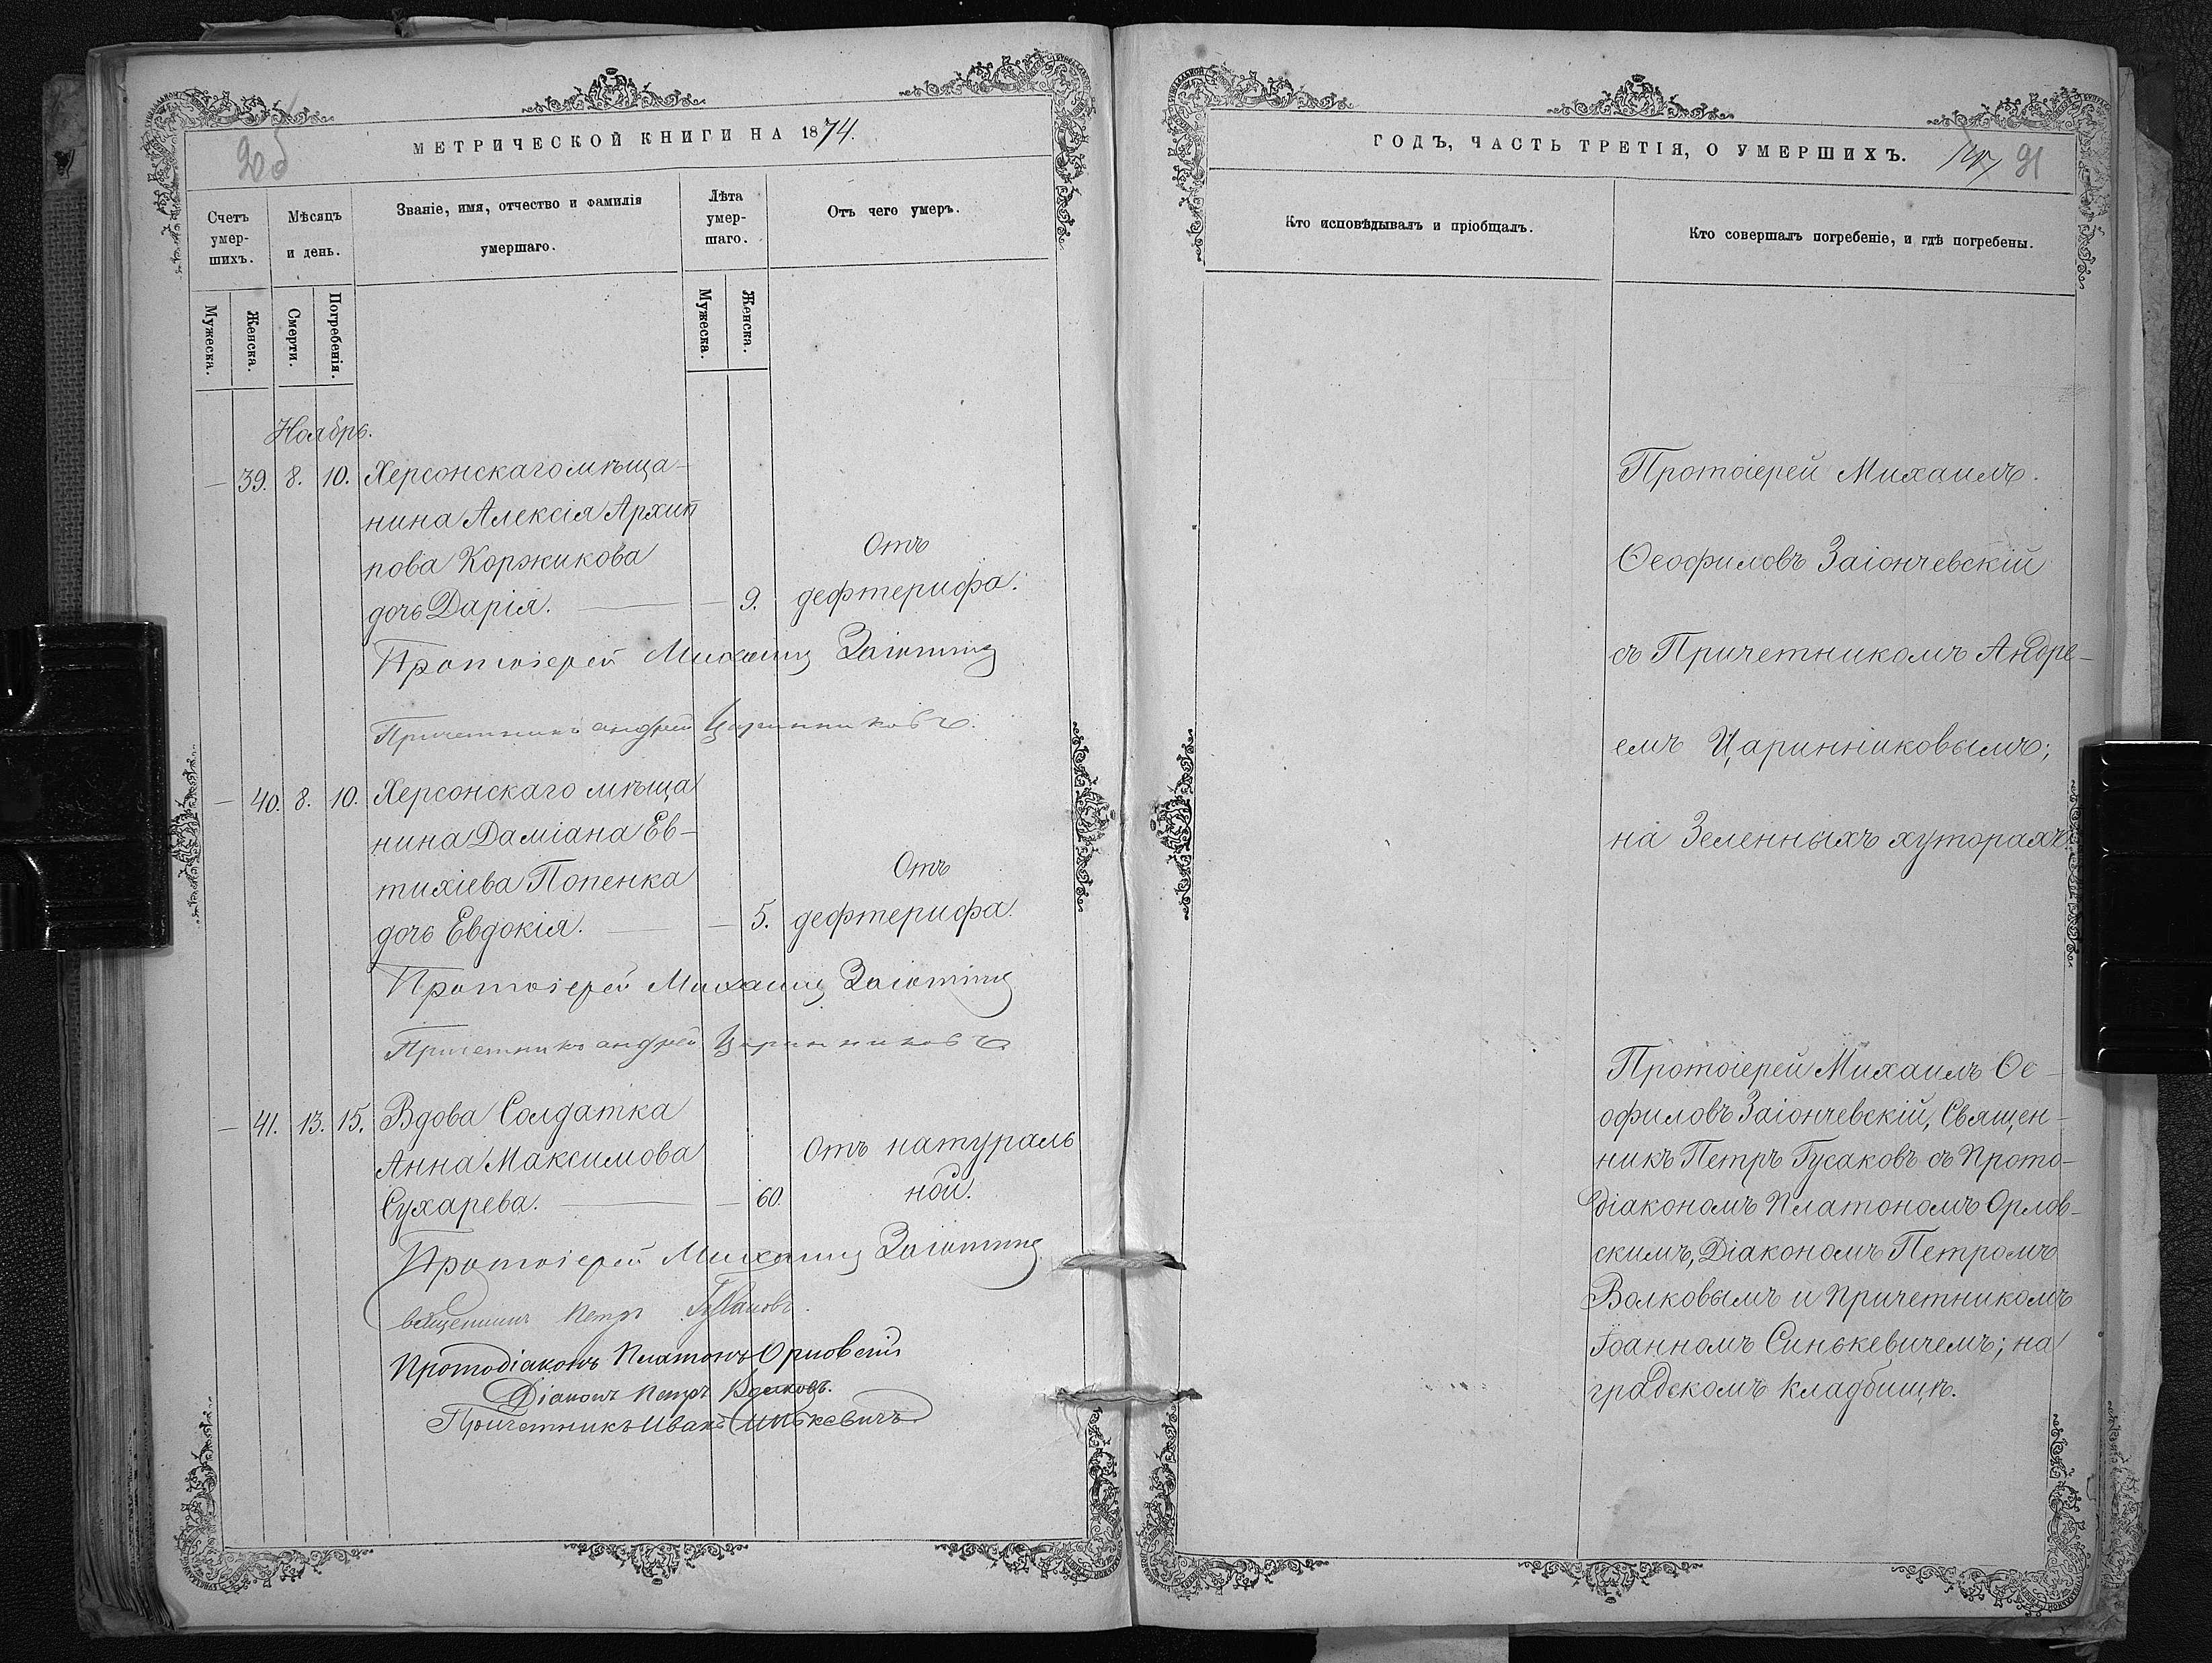 МЕТРИЧЕСКОЙ КНИГИ НА 1874.
Счетъ умер-шихъ.
Мѣсяцъ и день.
Званіе, имя, отчество и фамилія
умершаго.
Лѣта умер-шаго.
Отъ чего умеръ.
Мужеска.
Женска.
Смерти.
Погребенія.
Мужеска.
Женска.
Ноябрь.
— 39. 8. 10. Херсонскаго мѣща-
нина Алексія Архип
пова Коржикова
Отъ
дочь Дарія. — — 9. дефтерифа.
Протоіерей Михаилъ
Причетникъ Андрей Царинниковъ.
— 40. 8. 10. Херсонскаго мѣща
нина Даміана Ев-
тихіева Попенка
Отъ
дочь Евдокія. — — 5. дефтерифа.
Протоіерей Михаилъ
Причетникъ Андрей Царинниковъ
— 41. 13. 15. Вдова Солдатка
Анна Максимова
Отъ натураль
Сухарева. — — 60. ной.
Протоіерей Михаилъ
священникъ Петръ Гусаковъ.
Протодіаконъ Платонъ Орловскій
Діаконъ Петръ Волковъ.
Причетникъ Иванъ Синькевичъ
ГОДЪ, ЧАСТЬ ТРЕТІЯ, О УМЕРШИХЪ.
91
Кто исповѣдывалъ и пріобщалъ.
Кто совершалъ погребеніе, и гдѣ погребены.
Протоіерей Михаилъ.
Ѳеофиловъ Заіончевскій
съ Причетникомъ Андре-
емъ Царинниковымъ;
на Зеленныхъ хуторахъ
Протоіерей Михаилъ Ѳе-
офиловъ Заіончевскій, Священ-
никъ Петръ Гусаковъ съ Прото-
діакономъ Платономъ Орлов-
скимъ, Діакономъ Петромъ
Волковымъ и Причетникомъ
Іоанномъ Синькевичемъ; на
градскомъ кладбищѣ.